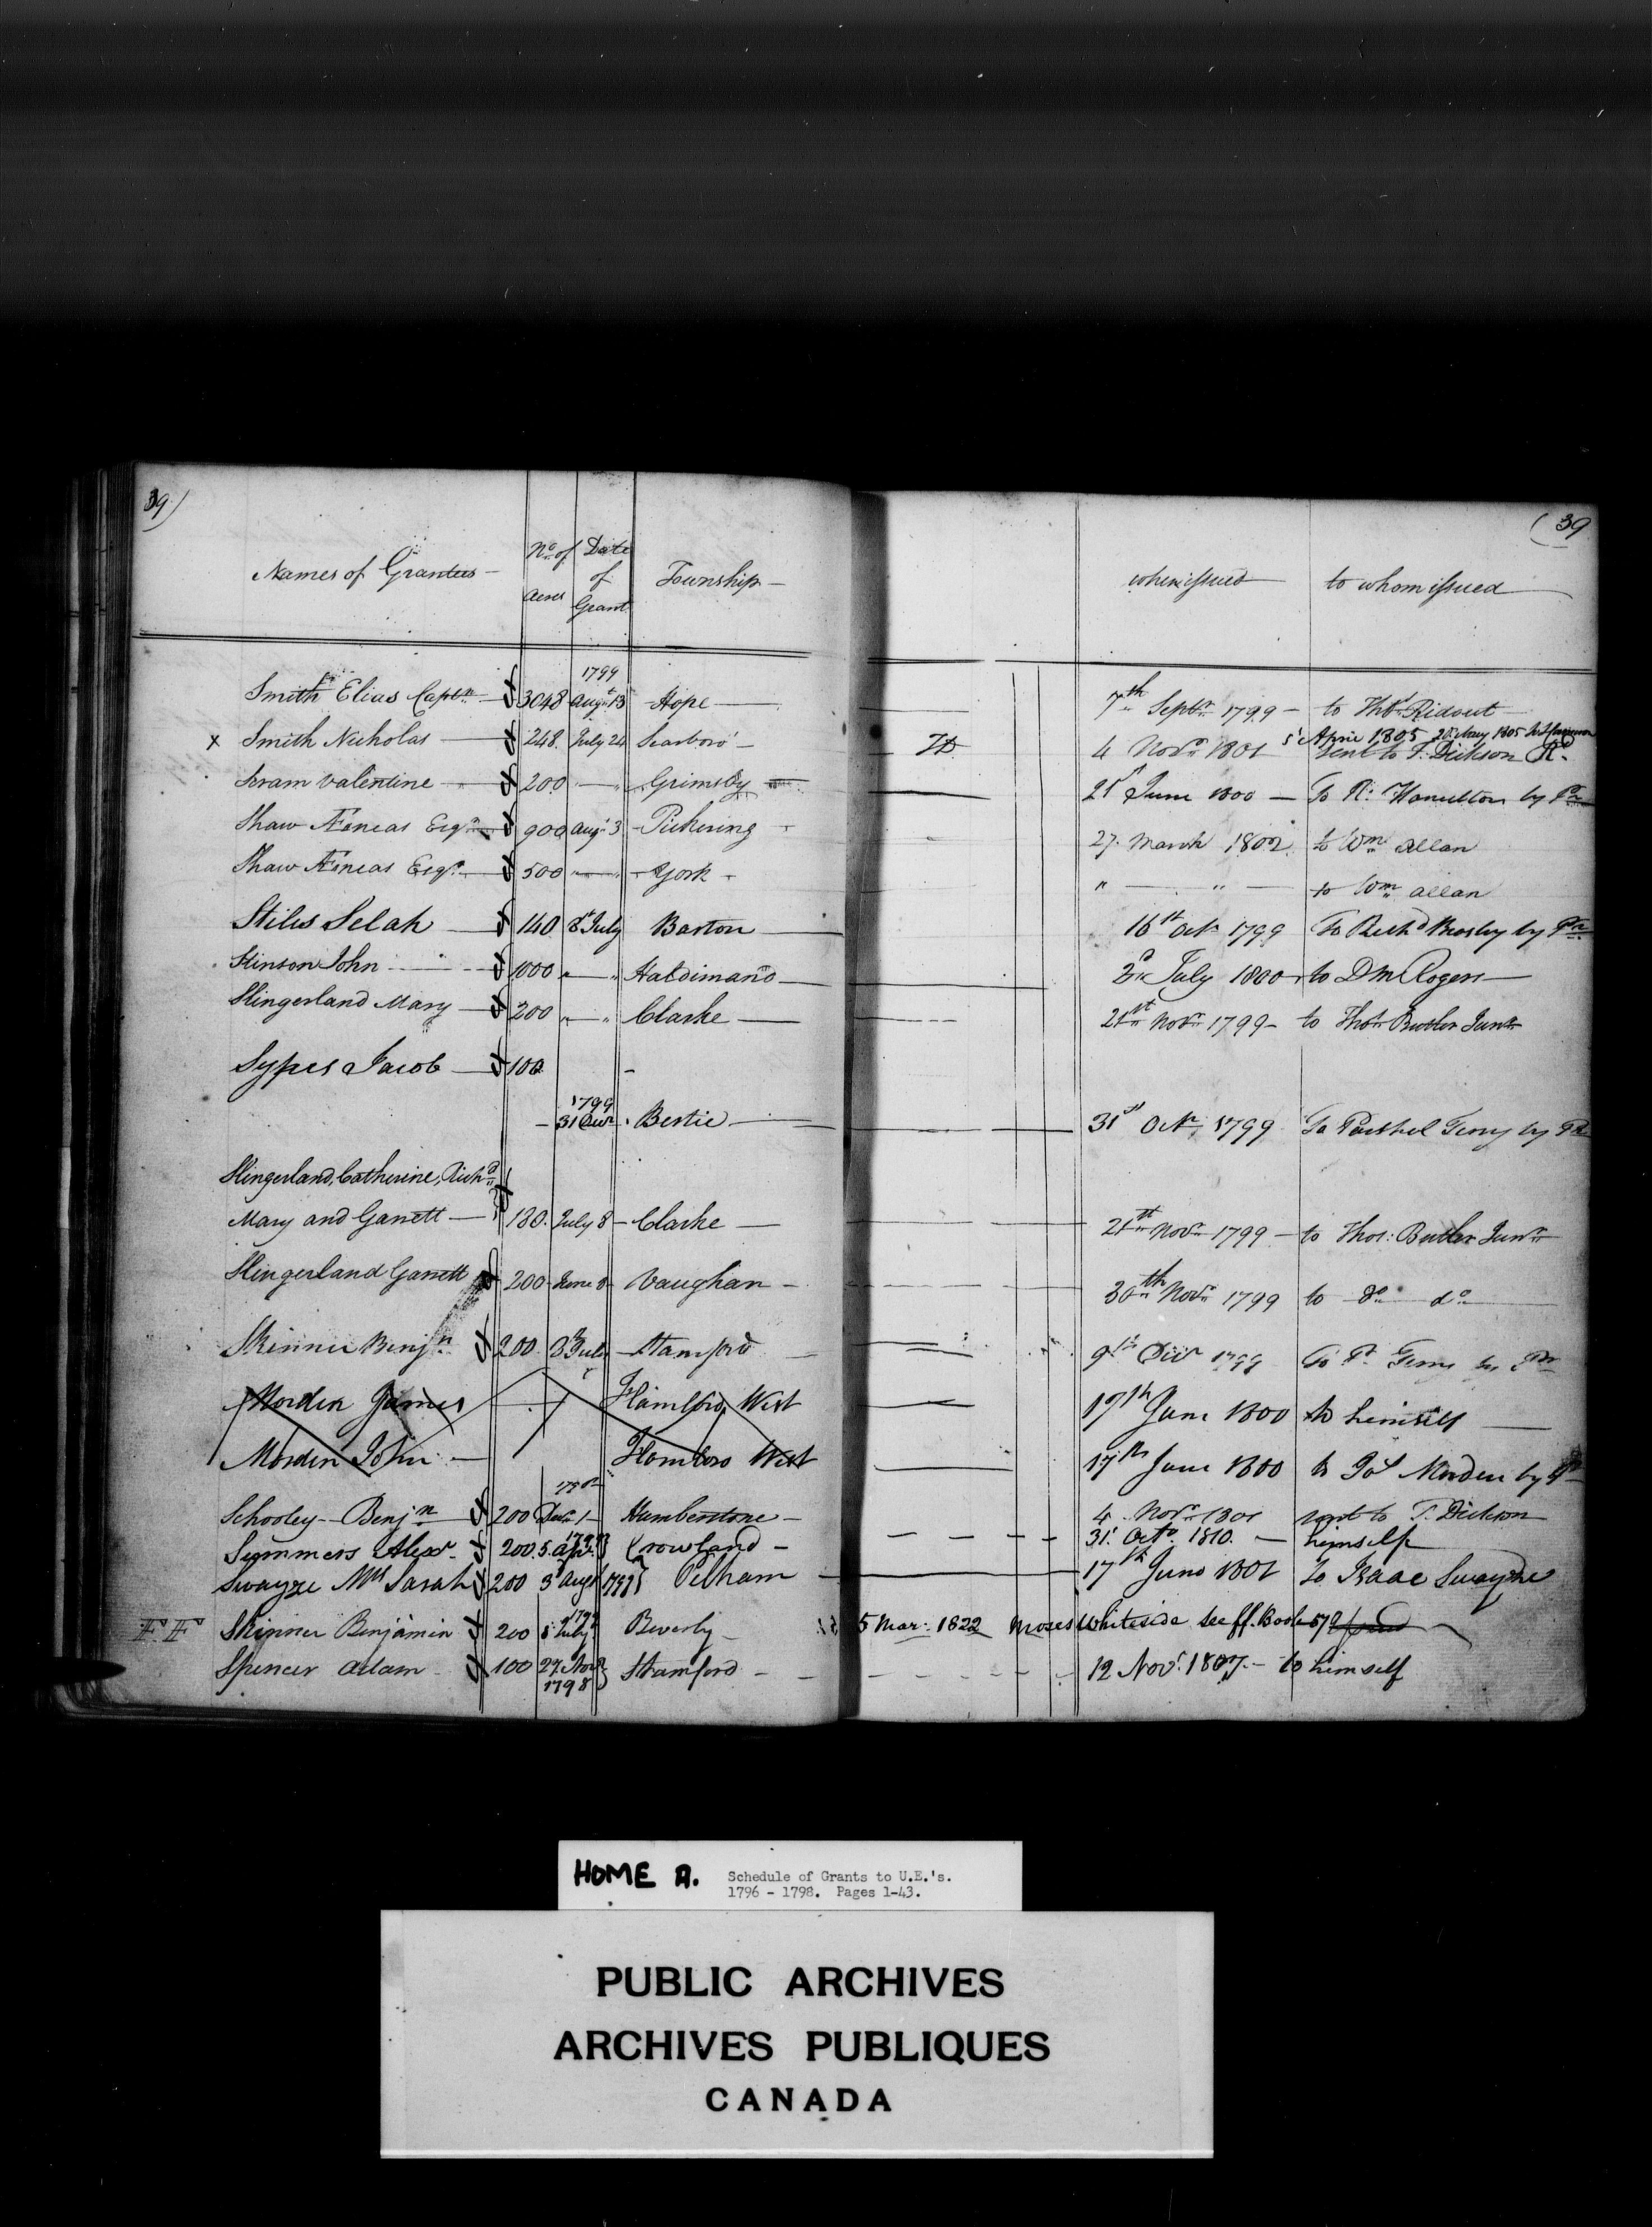 39) (39
Names of Grantees No. of Acres Date of Grant Township when issued to whom issued
1799
Smith Elias Captn 3048 Augt 13 Hope 7th Septr 1799 to Thos Ridout
5 April 1805 20 May 1805
x Smith Nicholas 248 July 24 Scarboro' 4 Novr 1801 Sent to T. Dickson
Sram Valentine 200 " Grimsby 21st June 1800 To R. Hamilton by Pr
Shaw Æneas Esqr 900 Augt 3 Pickering 27 March 1802 to Wm Allan
Shaw Æneas Esqr 500 " York " " to Wm Allan
Stiles Selah 140 8t July Barton 16th Octr 1799 To Richd Beasley by Pr
Stinson John 1000 " " Haldimand 3d July 1800 to D McRogers
Slingerland Mary 200 " " Clarke 21st Novr 1799 to Thos Butler Junr
Sypes Jacob 100
1799
31 Decr Bertie 31st Octr 1799 To Parshel Terry by Pr
Slingerland, Catherine, Richd
Mary and Garrett 180 July 8 Clarke 21st Novr 1799 to Thos: Butler Junr
Slingerland Garrett 200 June 8 Vaughan 30th Novr 1799 to do do
Skinner Benjn 200 8 July Stamford 9th Decr 1799 To P. Terry by Pr
Morden James Flamboro West 17th June 1800 to himself
Morden John Flamboro West 17th June 1800 to Jas Morden by Pr
Schooley Benjn 200 Decr 1 Humberstone 4 Novr 1801 sent to T. Dickson
Summers Alexr 200 5 Apr. 1797 Crowland 31 Octo 1810 himself
Swayze Mrs Sarah 200 3 Augt 1797 Pelham 17th June 1801 To Isaac Swayze
F F Skinner Benjamin 200 5 July 1799 Beverly 5 Mar: 1822 Moses Whiteside see ff. Book 572
Spencer Adam 100 27 Novr 1798 Stramford 12 Novr 1807 to himself
HOME A. Schedule of Grants to U.E.'s.
1796 - 1798. Pages 1-43.
PUBLIC ARCHIVES
ARCHIVES PUBLIQUES
CANADA